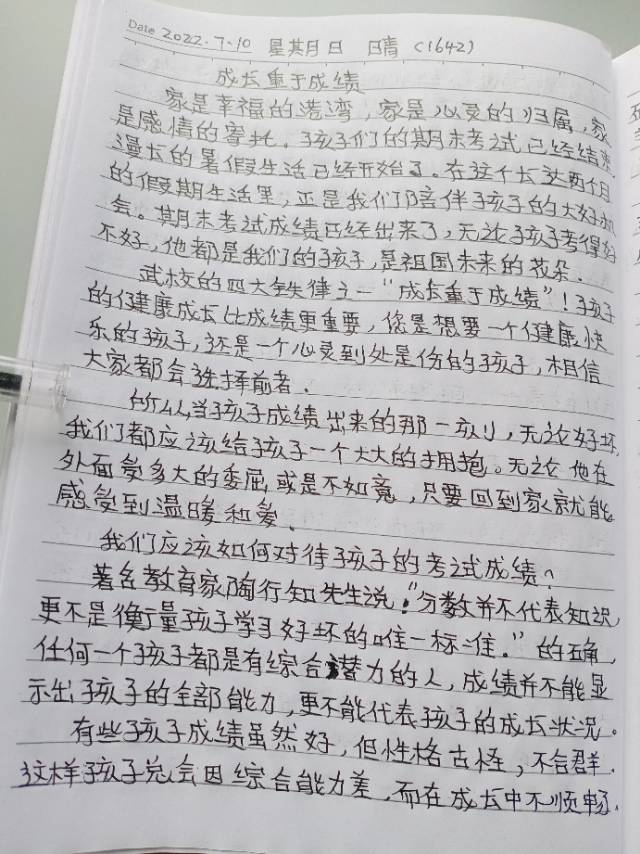 Date 2022.7.10 星期日 晴 (1642)
成长重于成绩
家是幸福的港湾,家是心灵的归属,家
是感情的寄托。孩子们的期末考试已经结束
漫长的暑假生活已经开始了。在这个长达两个月
的假期生活里,正是我们陪伴孩子的大好机
会。期末考试成绩已经出来了,无论孩子考得好
不好,他都是我们的孩子,是祖国未来的花朵。
武校的四大铁律之一"成长重于成绩"!孩子
的健康成长比成绩更重要,您是想要一个健康快
乐的孩子,还是一个心灵到处是伤的孩子,相信
大家都会选择前者。
所以当孩子成绩出来的那一刻,无论好坏,
我们都应该给孩子一个大大的拥抱。无论他在
外面受多大的委屈,或是不如意,只要回到家就能
感受到温暖和爱。
我们应该如何对待孩子的考试成绩?
著名教育家陶行知先生说:"分数并不代表知识,
更不是衡量孩子学习好坏的唯一标准。"的确,
任何一个孩子都是有综合潜力的人,成绩并不能显
示出孩子的全部能力,更不能代表孩子的成长状况。
有些孩子成绩虽然好,但性格古怪,不合群。
这样孩子总会因综合能力差,而在成长中不顺畅。